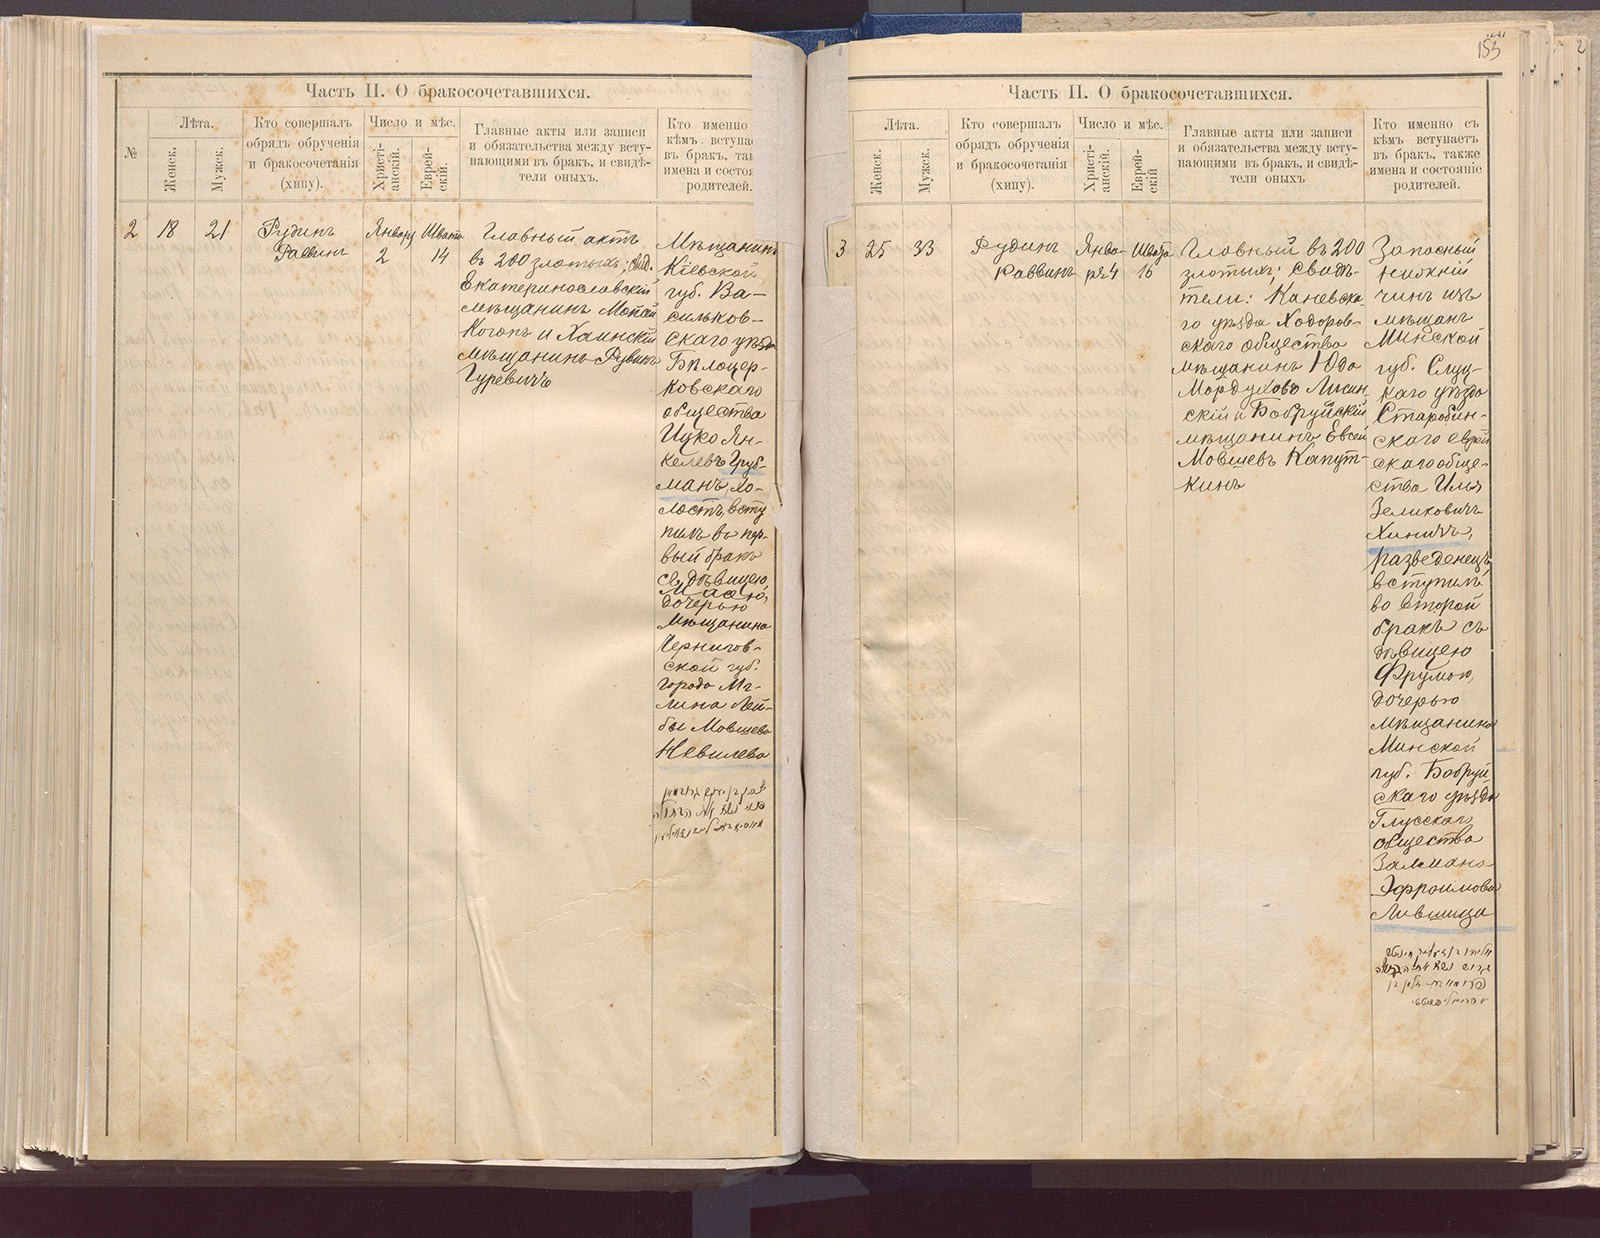 Часть II. О бракосочетавшихся.
№
Лѣта.
Женск.
Мужск.
Кто совершалъ
обрядъ обрученія
и бракосочетанія
(хипу).
Число и мѣс.
Христі-
анскій.
Еврей-
скій.
Главные акты или записи
и обязательства между всту-
пающими въ бракъ, и свидѣ-
тели оныхъ.
Кто именно
кѣмъ вступае
въ бракъ, так
имена и состоя
родителей.
2
18
21
Рудинъ
Раввинъ
Январ
2
Швата
14
Главный актъ
въ 200 злотыхъ; свид.
Екатеринославскій
мѣщанинъ
Коганъ и
мѣщанинъ Рувинъ
Гуревичъ
Мѣщанинъ
Кіевской
губ. Ва-
сильков-
скаго уѣзда
Бѣлоцер-
ковскаго
общества
Ицко Ян-
келевъ Груб-
манъ, хо-
лостъ, всту
пилъ въ пер-
вый бракъ
съ дѣвицею
Масею,
дочерью
мѣщанина
Чернигов-
ской губ.
города Мг-
лина Лей-
бы Мовшева
Невилева
153
Часть II. О бракосочетавшихся.
Лѣта.
Женск.
Мужск.
Кто совершалъ
обрядъ обрученія
и бракосочетанія
(хипу).
Число и мѣс.
Христі-
анскій.
Еврей-
скій
Главные акты или записи
и обязательства между всту-
пающими въ бракъ, и свидѣ-
тели оныхъ
Кто именно съ
кѣмъ вступаетъ
въ бракъ, также
имена и состояніе
родителей.
3
25
33
Рудинъ
Раввинъ
Янва-
ря 4
Швата
16
Главный въ 200
злотыхъ; свидѣ-
тели: Каневска-
го уѣзда Ходоров-
скаго общества
мѣщанинъ Юдо
Мордуховъ Лисян
скій и Бобруйскій
мѣщанинъ Евсей
Мовшевъ Капут-
кинъ
Запасный
нижній
чинъ изъ
мѣщанъ
Минской
губ. Слуц-
каго уѣзда
Старобин-
скаго еврей
скаго обще-
ства Илья
Зеликовичъ
Хиничъ,
разведенецъ,
вступилъ
во второй
бракъ съ
дѣвицею
Фрумою,
дочерью
мѣщанина
Минской
губ. Бобруй
скаго уѣзда
Глусскаго
общества
Залмана
Эфроимова
Лившица